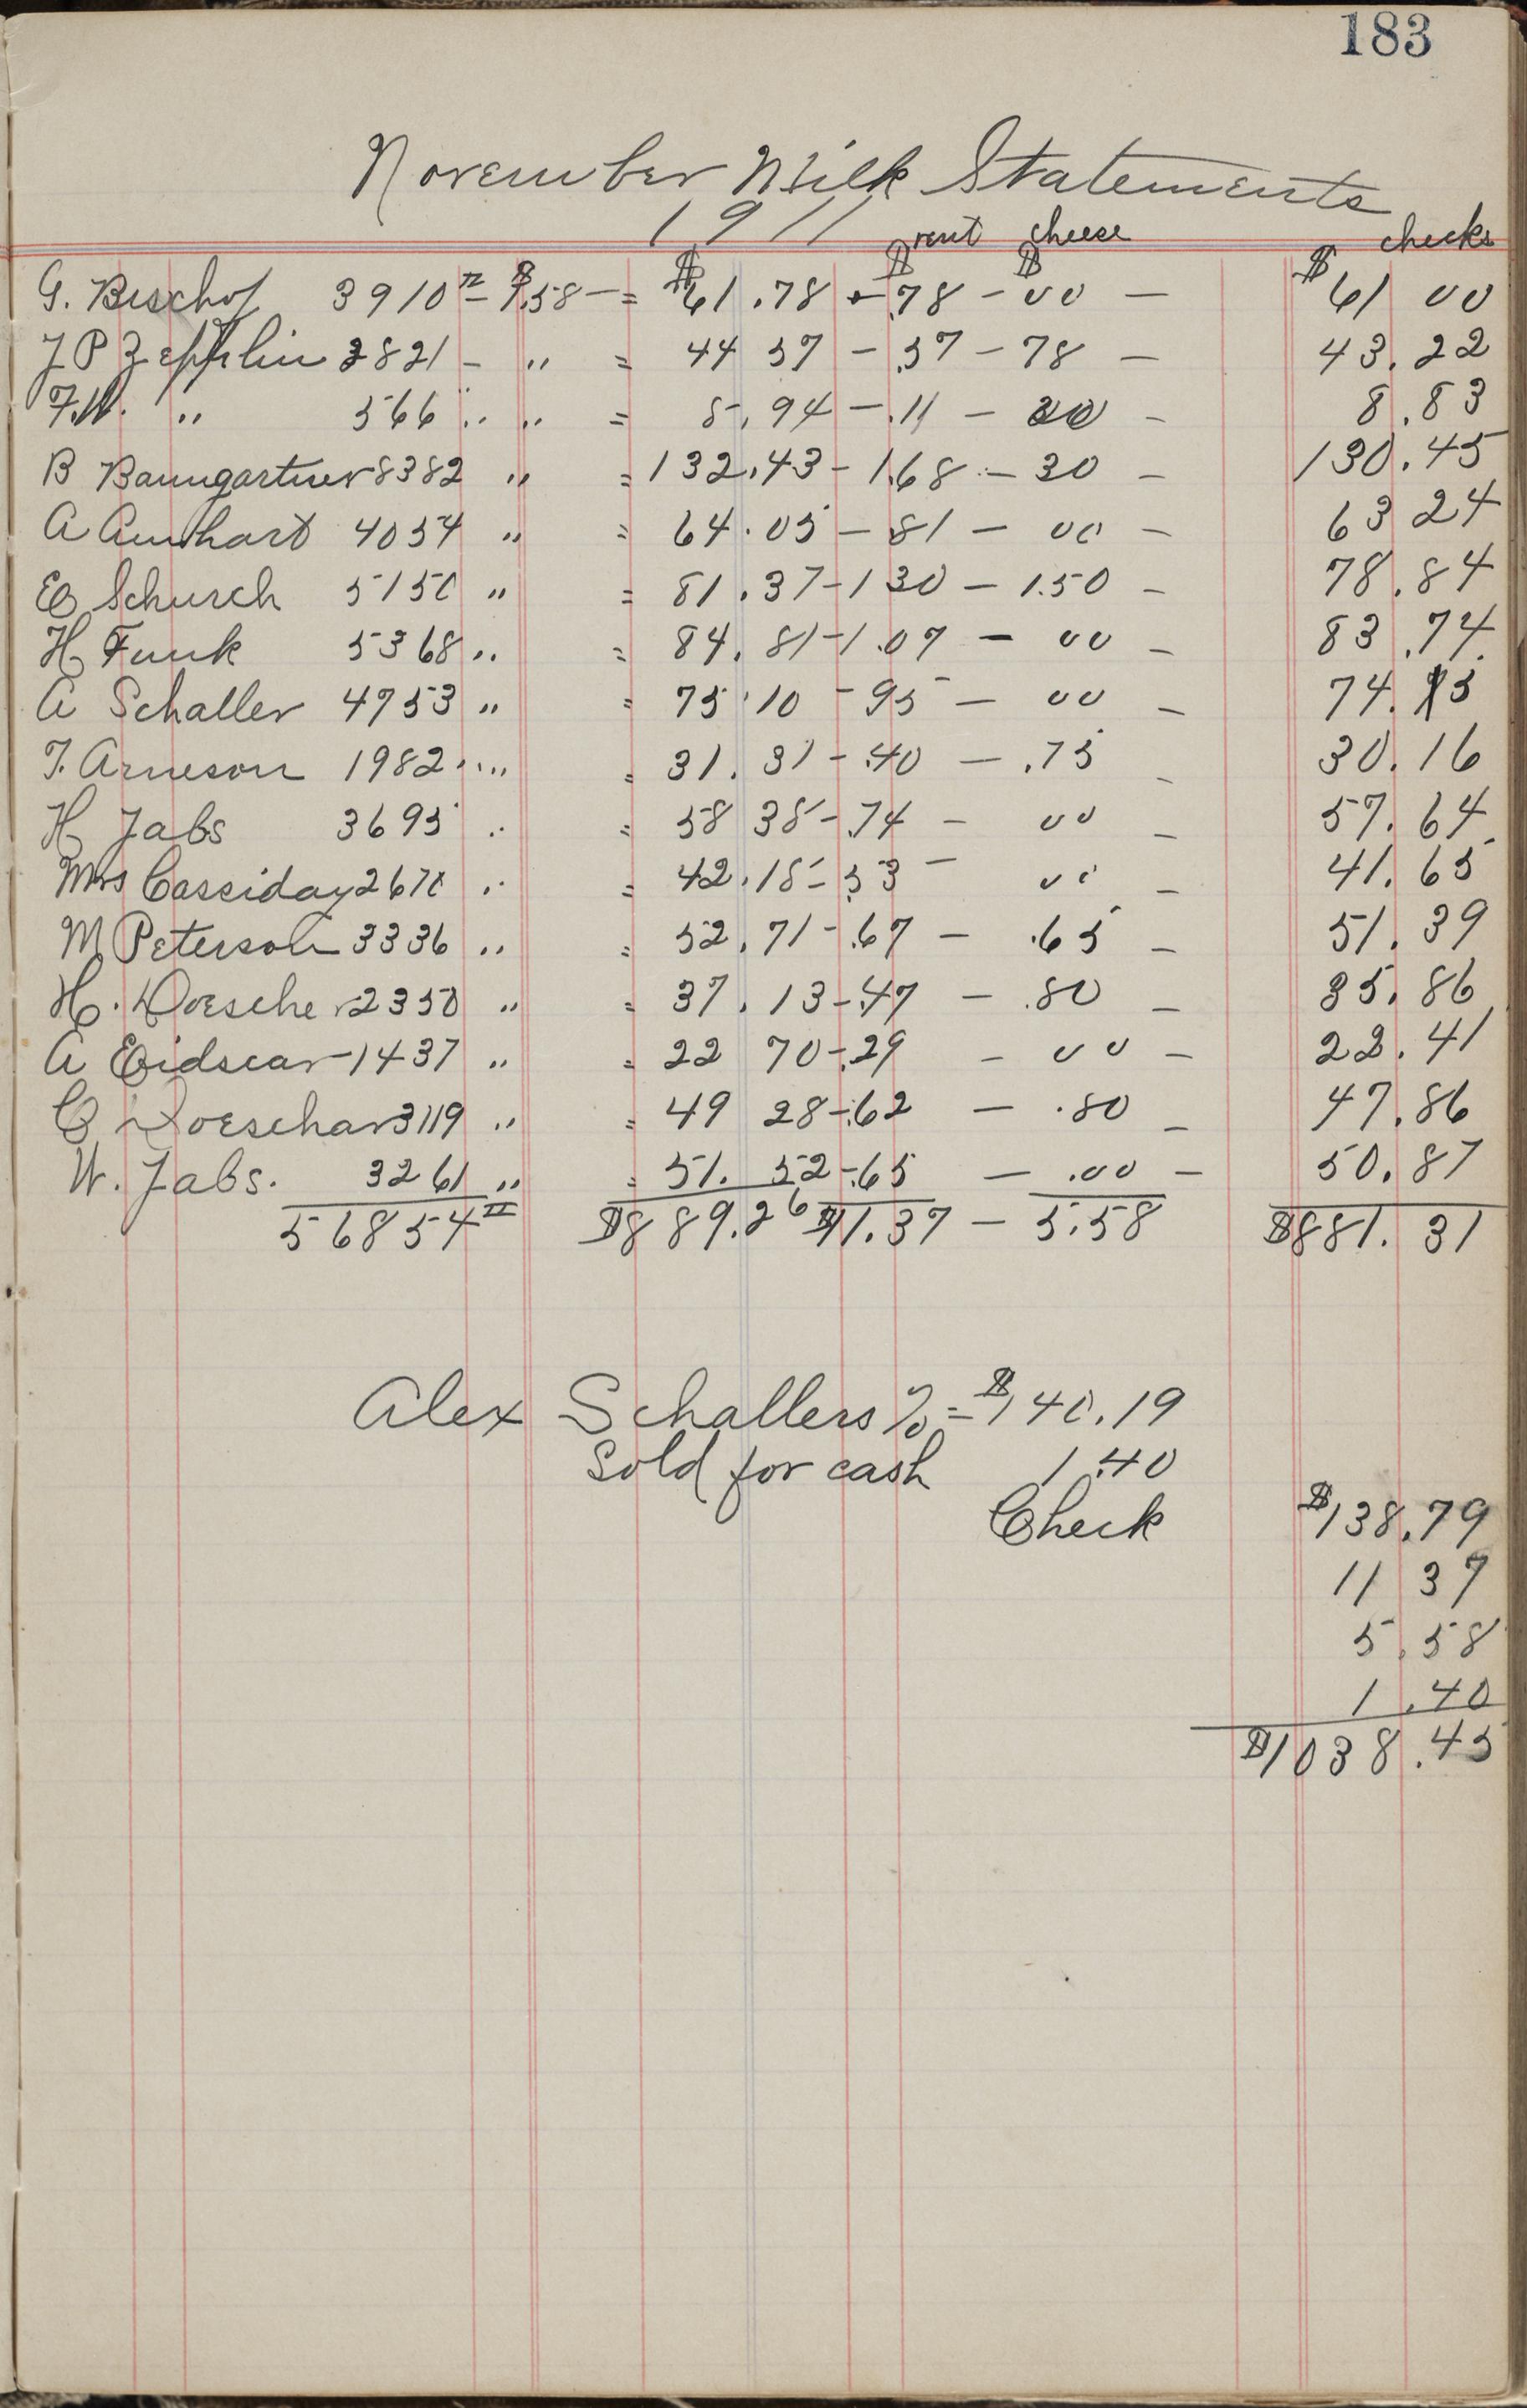 183
November Milk Statements
1911
rent cheese checks
G. Bischof 3910 - $1.58 - = $61.78 - $.78 - $00 - $61 00
J P Zepplin 2821 - " = 44 57 - .57 - 78 - 43.22
F.W. " 566 " " = 8.94 - .11 - 00 - 8.83
B Baumgartner 8382 " = 132.43 - 1.68 - 30 - 130.45
A Amhart 4054 " = 64.05 - 81 - 00 - 63 24
E Schurch 5150 " = 81.37 - 1 30 - 1.50 - 78.84
H Funk 5368 " = 84.81 - 1.07 - 00 - 83.74
A Schaller 4753 " = 75.10 - 95 - 00 - 74.15
T. Arneson 1982 " = 31.31 - .40 - .75 - 30.16
H Jabs 3695 " = 58 38 - .74 - 00 - 57.64
Mrs Cassiday 2670 " = 42.18 - 53 - 00 - 41.65
M Peterson 3336 " = 52.71 - .67 - .65 - 51.39
H. Doescher 2350 " = 37.13 - .47 - .80 - 35.86
A Eidscar 1437 " = 22 70 - .29 - 00 - 22.41
C Doeschar 3119 " = 49 28 - .62 - .80 - 47.86
W. Jabs. 3261 " = 51.52 - .65 - .00 - 50.87
56854 $889.26 $11.37 - 5.58 $881.31
Alex Schallers % = $140.19
Sold for cash 1.40
Check $138.79
11 37
5.58
1.40
$1038.45